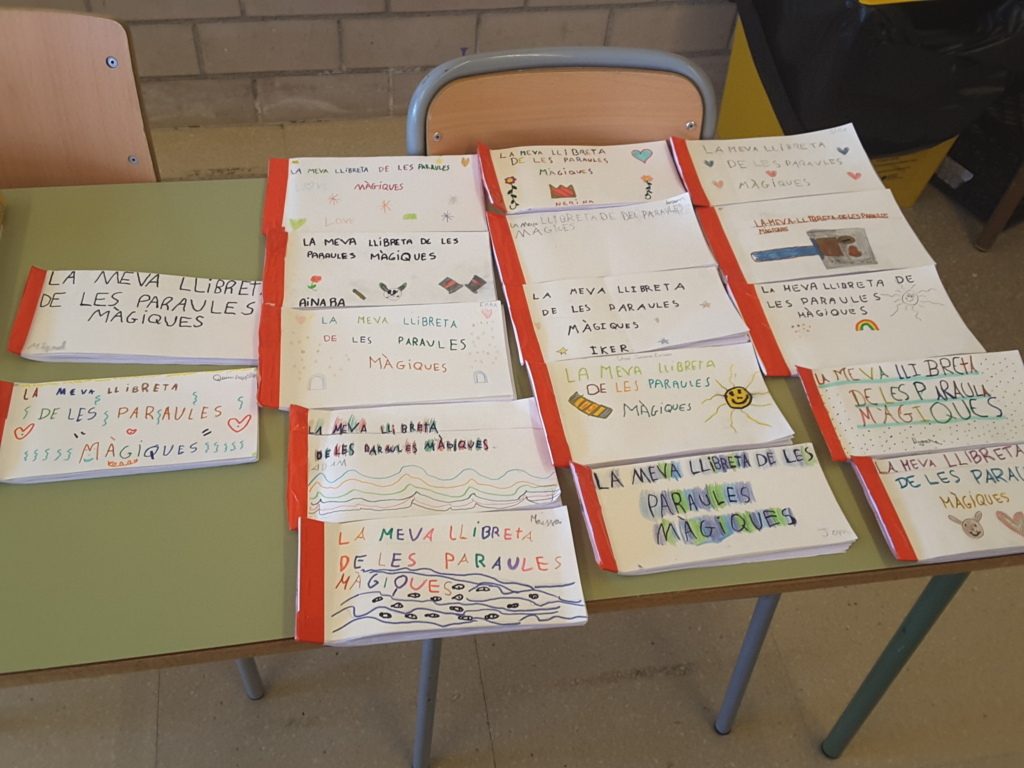 LA MEVA LLIBRETA
DE LES PARAULES
MÀGIQUES
LA MEVA LLIBRETA
DE LES PARAULES
MÀGIQUES
LA MEVA LLIBRETA DE LES PARAULES
MÀGIQUES
Love
LA MEVA LLIBRETA DE LES
PARAULES MÀGIQUES
AiNARA
LA MEVA LLIBRETA
DE LES PARAULES
MÀGIQUES
LA MEVA LLIBRETA
DE LES PARAULES MÀGIQUES
ADAM
Maissa
LA MEVA LLIBRETA
DE LES PARAULES
MÀGIQUES
LA MEVA LLIBRETA
DE LES PARAULES
MÀGIQUES
LA MEVA LLIBRETA DE DEL PARAULES
MÀGIQUES
LA MEVA LLIBRETA
DE LES PARAULES
MÀGIQUES
IKER
LA MEVA LLIBRETA
DE LES PARAULES
MÀGIQUES
LA MEVA LLIBRETA DE LES
PARAULES
MÀGIQUES
LA MEVA LLIBRETA
DE LES PARAULES
MÀGIQUES
LA MEVA LLIBRETA DE LES PARAULES
MÀGIQUES
LA MEVA LLIBRETA DE
LES PARAULES
MÀGIQUES
LA MEVA LLIBRETA
DE LES PARAULA
MÀGIQUES
LA MEVA LLIBRETA
DE LES PARAUL
MÀGIQUES